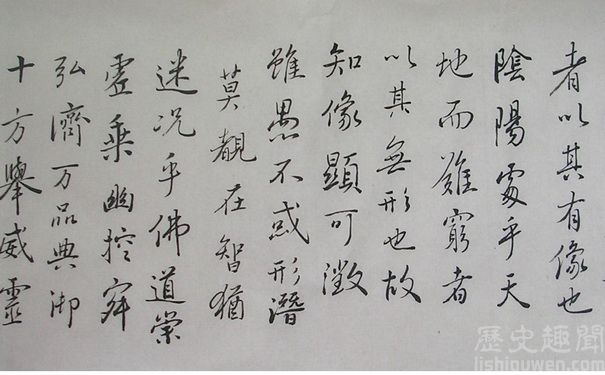 者以其有像也
陰陽處乎天
地而難窮者
以其無形也故
知像顯可徵
雖愚不惑形潛
莫覩在智猶
迷況乎佛道崇
虛乘幽控寂
弘濟万品典御
十方舉威靈
歷史趣聞
lishiquwen.com